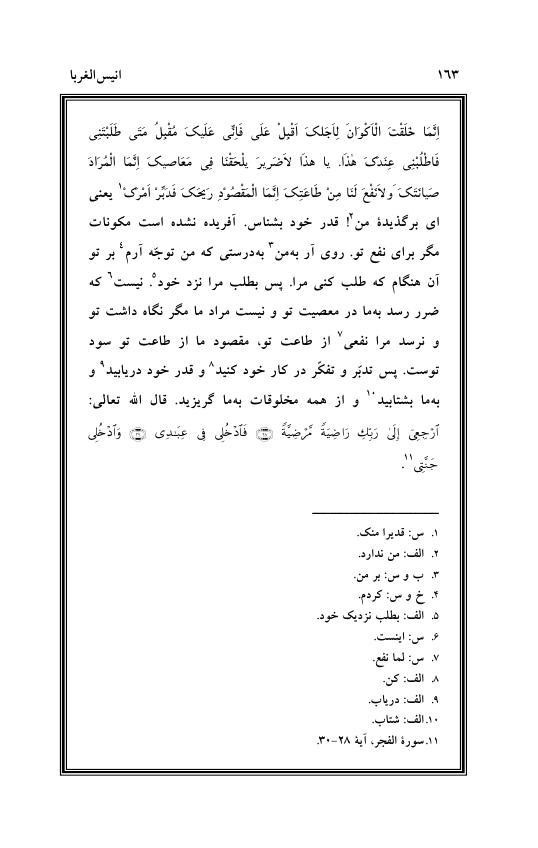 ۱۶۳ انیس‌الغربا
اِنَّمَا خَلَقْت الْأَکْوَانَ لِاَجَلکَ اَقْبِلْ عَلَی فَإنِّی عَلَیکَ مُقْبِلُ مَتَی طَلَبْتَنِی
فَاطْلُبْنِی عِنْدَکَ هٰذَا. یا هذَا لاَضَریرَ یلْحَقْنَا فِی مَعَاصیکَ اِنَّمَا الْمُرَادَ
صَیانَتَکَ وَلاَنَفْعَ لَنَا مِنْ طَاعَتِکَ اِنَّمَا الْمَقْصُوْدَ رِبحَکَ فَدَبِّرْ اَمْرَکَ۱ یعنی
ای برگزیدهٔ من۲! قدر خود بشناس. آفریده نشده است مکونات
مگر برای نفع تو. روی آر به‌من۳ به‌درستی که من توجّه آرم۴ بر تو
آن هنگام که طلب کنی مرا. پس بطلب مرا نزد خود۵. نیست۶ که
ضرر رسد به‌ما در معصیت تو و نیست مراد ما مگر نگاه داشت تو
و نرسد مرا نفعی۷ از طاعت تو، مقصود ما از طاعت تو سود
توست. پس تدبّر و تفکّر در کار خود کنید۸ و قدر خود دریابید۹ و
به‌ما بشتابید۱۰ و از همه مخلوقات به‌ما گریزید. قال الله تعالی:
ٱرْجِعِىٓ إِلَىٰ رَبِّكِ رَاضِيَةً مَّرْضِيَّةً ۝٢٨ فَٱدْخُلِى فِى عِبَـٰدِى ۝٢٩ وَٱدْخُلِى
جَنَّتِى۱۱.
۱. س: قدیرا منک.
۲. الف: من ندارد.
۳. ب و س: بر من.
۴. خ و س: کردم.
۵. الف: بطلب نزدیک خود.
۶. س: اینست.
۷. س: لما نفع.
۸. الف: کن.
۹. الف: دریاب.
۱۰. الف: شتاب.
۱۱. سورهٔ الفجر، آیهٔ ۲۸-۳۰.